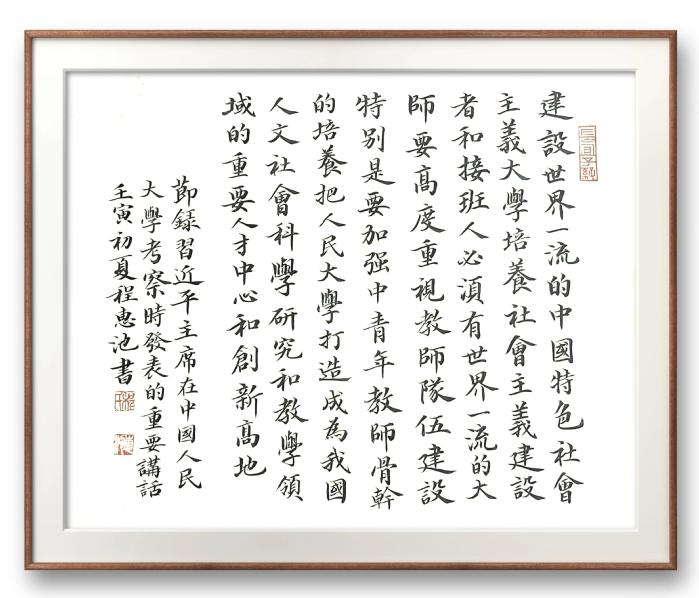 建設世界一流的中國特色社會
主義大學培養社會主義建設
者和接班人必須有世界一流的大
師要高度重視教師隊伍建設
特别是要加强中青年教師骨幹
的培養把人民大學打造成為我國
人文社會科學研究和教學領
域的重要人才中心和創新高地
節録習近平主席在中國人民
大學考察時發表的重要講話
壬寅初夏程惠池書